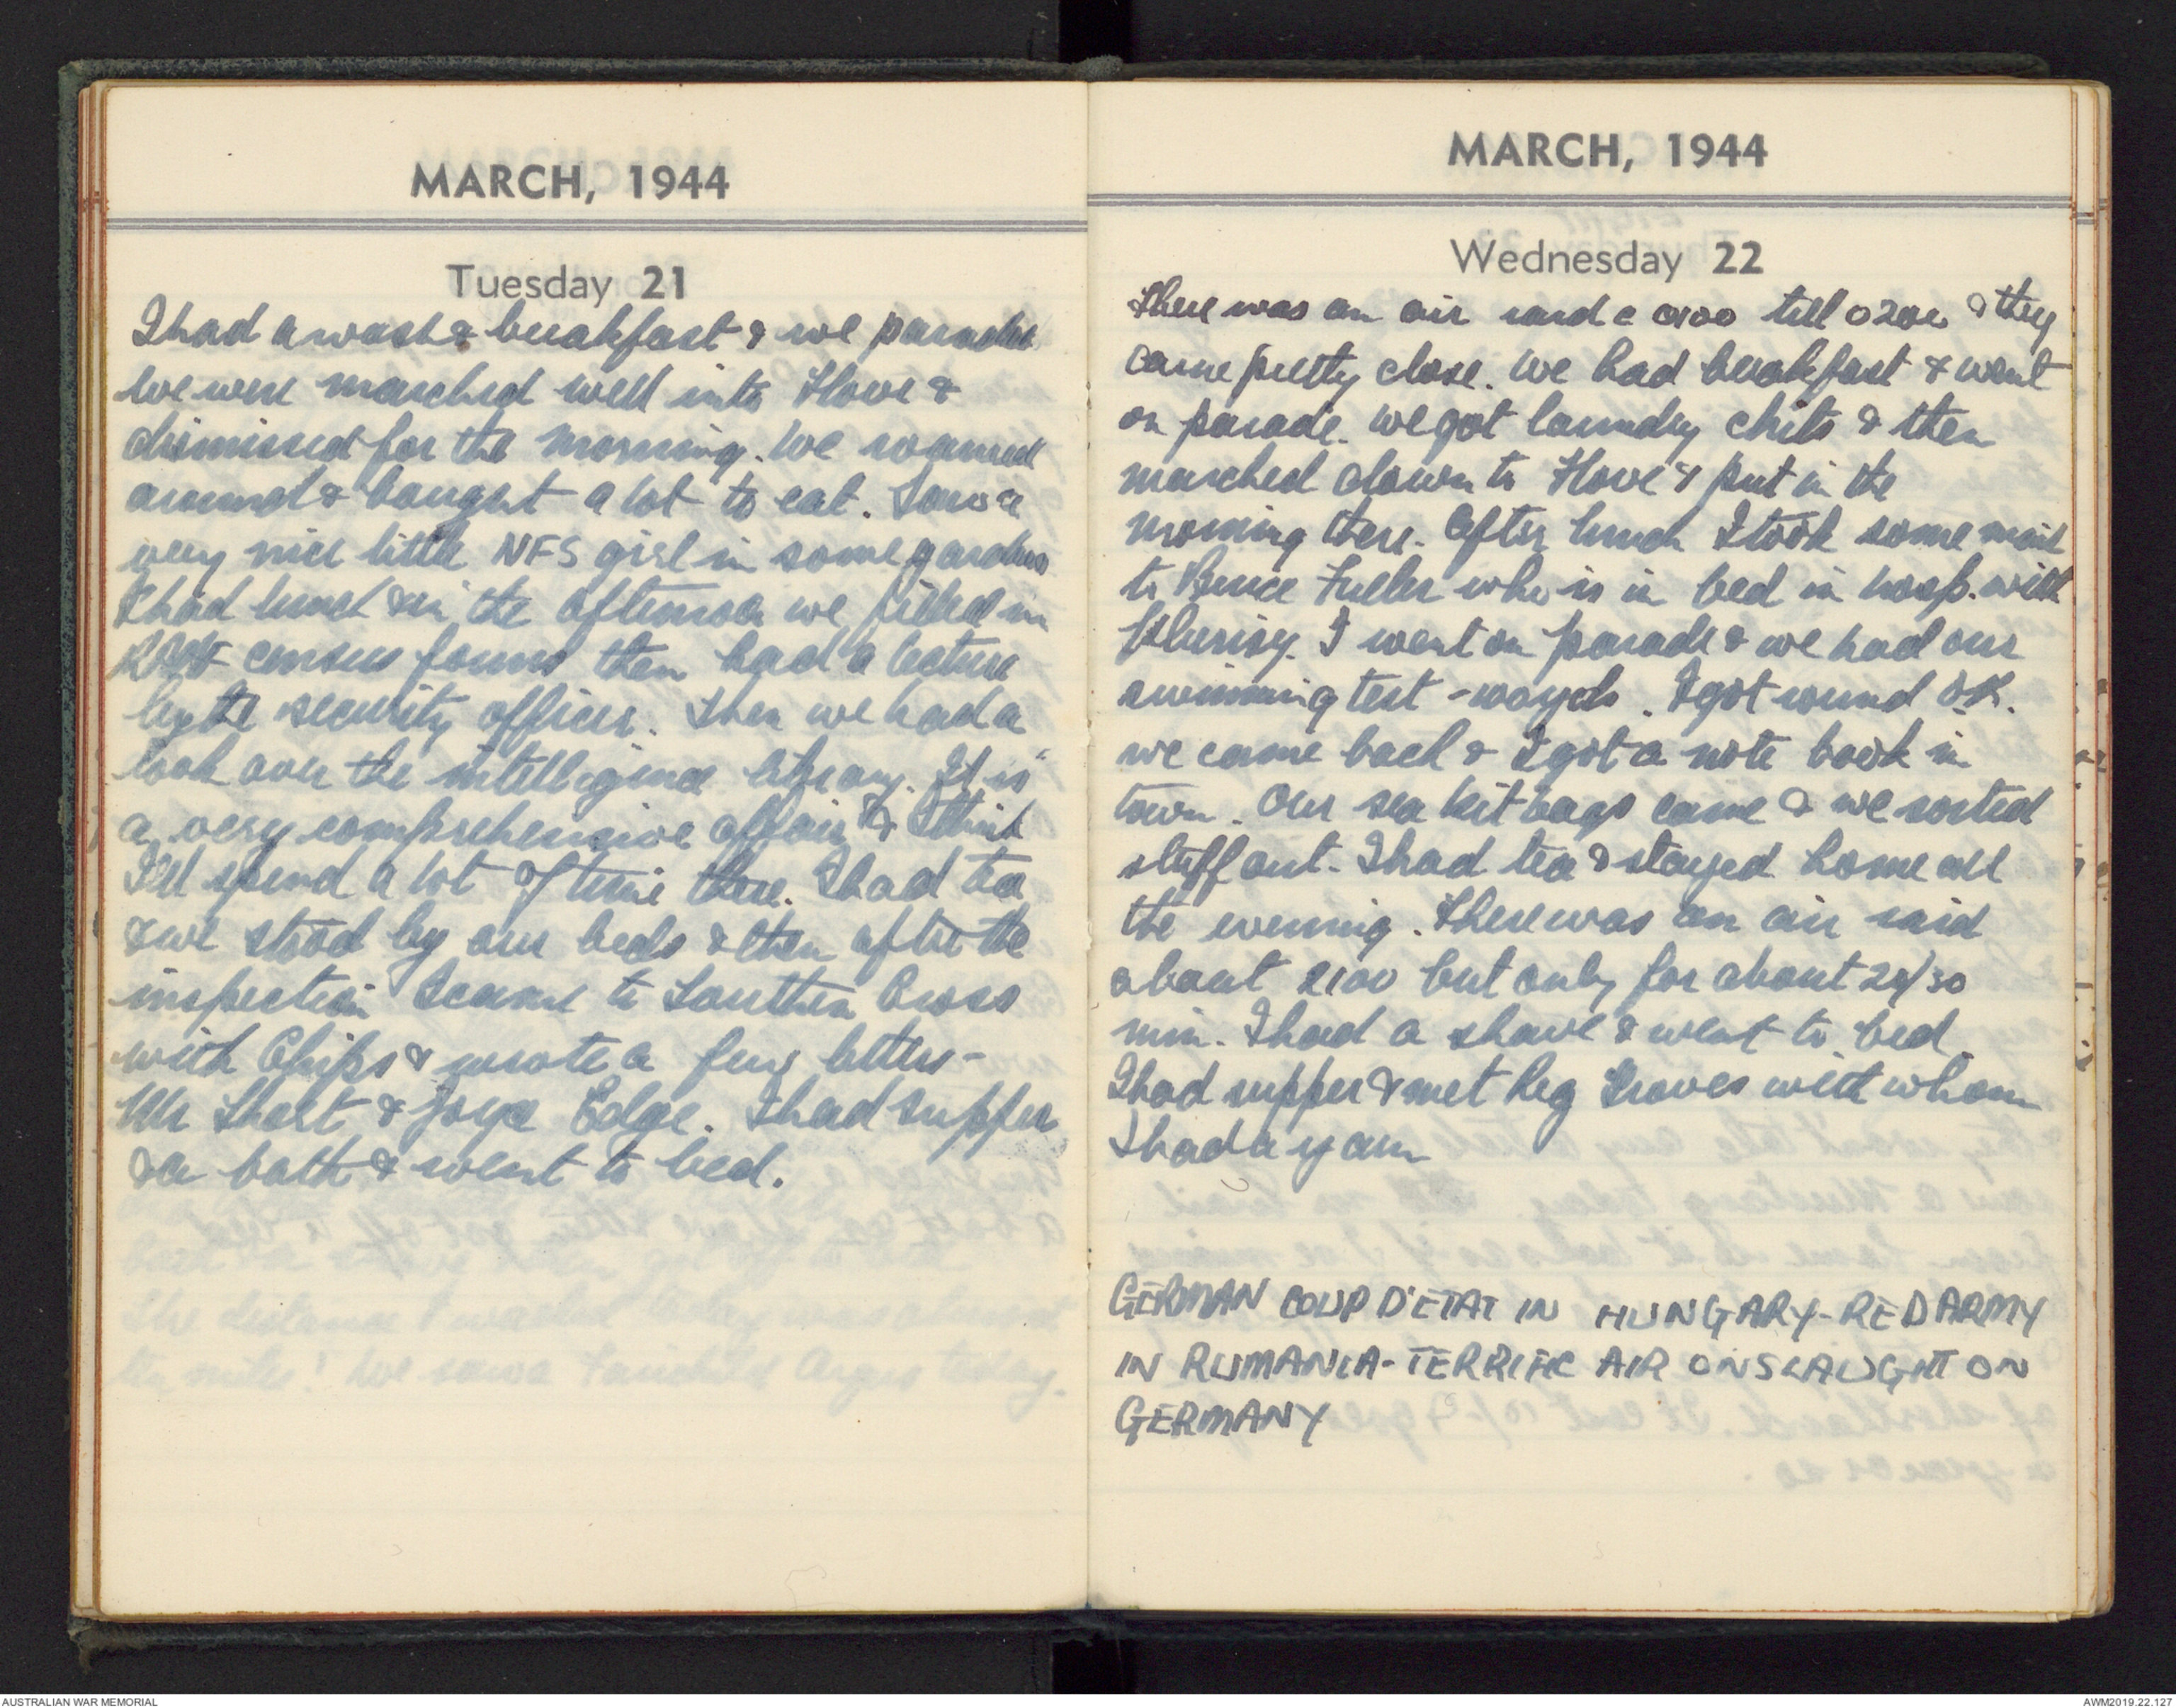 MARCH, 1944
Tuesday 21
I had a wash & breakfast & we paraded
We were marched well into Hove &
dismissed for the morning. We roamed
around & bought a lot to eat. Saw a
very nice little NFS girl in some gardens
I had lunch & in the afternoon we filled in
census forms then had a lecture
by the security officer. Then we had a
look over the intelligence library. It is
a very comprehensive affair & I think
I'll spend a lot of time there. I had tea
& we stood by our beds & then after the
inspection I came to Southern Cross
with Chips & wrote a few letters -
Mr Short & Joyce Edge. I had supper
& a bath & went to bed.
MARCH, 1944
Wednesday 22
There was an air raid c 0100 till 0200 & they
came pretty close. We had breakfast & went
on parade. We got laundry chits & then
marched down to Hove & put in the
morning there. After lunch I took some mail
to Bruce Fuller who is in bed in hosp. with
Pleurisy. I went on parade & we had our
swimming test - yds. I got round OK.
We came back & I got a note book in
town. Our sea kit bags came & we sorted
stuff out. I had tea & stayed home all
the evening. There was an air raid
about 2100 but only for about 20/30
min. I had a shave & went to bed.
I had supper & met Reg Groves with whom
I had a yarn
GERMAN COUP D'ETAT IN HUNGARY - RED ARMY
IN RUMANIA - TERRIFIC AIR ONSLAUGHT ON
GERMANY
AUSTRALIAN WAR MEMORIAL
AWM2019.22.127